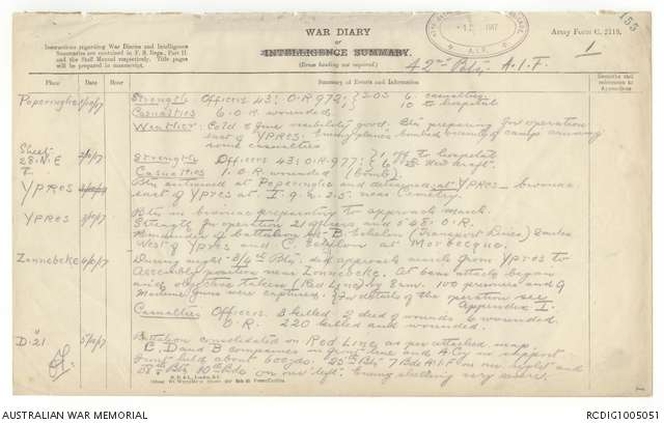 WAR DIARY
or
INTELLIGENCE SUMMARY.
(Erase heading not required.)
Army Form C. 2118.
153
1
Instructions regarding War Diaries and Intelligence
Summaries are contained in F. S. Regs., Part II.
and the Staff Manual respectively. Title pages
will be prepared in manuscript.
42nd Bttn. A.I.F.
Place Date Hour Summary of Events and Information Remarks and references to Appendices
Poperinghe Strength Officers 43: O.R 979. S.O.S 6. casualties
10 to hospital
Casualties 6. O.R wounded
Weather: Cold & fine visibility good. Bttn preparing for operation
east of YPRES. Enemy planes bombed bounds of camp causing
some casualties
Sheet
28. N.E Strength Officers 43: O.R. 977: to hospital
Casualties 1. O.R. wounded (bomb)
YPRES Bttn entrained at Poperinghe and detrained at YPRES — bivouac
east of Ypres at I. 9. 2.5. near Cemetery.
YPRES 3/10/17 Bttn in bivouac preparing to approach march.
Strength for operation 21 officers and 548. O.R.
Remainder of Battalion at B. Echelon (Transport Lines)
West of Ypres and C. Echelon at Morbecque.
Zonnebeke 4/10/17 During night 3/4th Bttn. did approach march from YPRES to
Assembly position near Zonnebeke. At 6am attack began
and objective taken (Red Line) by 8am. 100 prisoners and 9
Machine Guns were captured. For details of the operation see
Appendix I.
Casualties Officers 3 killed 2 died of wounds 6 wounded
O.R. 220 killed and wounded.
D.21 5/10/17 Battalion consolidated on Red Line as per attached map.
C, D and B companies in front line and A. Coy in support
front held about 600yds. Bttn 7 Bde A.I.F on our right and
38th Bttn 10th Bde on our left. Enemy shelling very severe.
AUSTRALIAN WAR MEMORIAL
RCDIG1005051